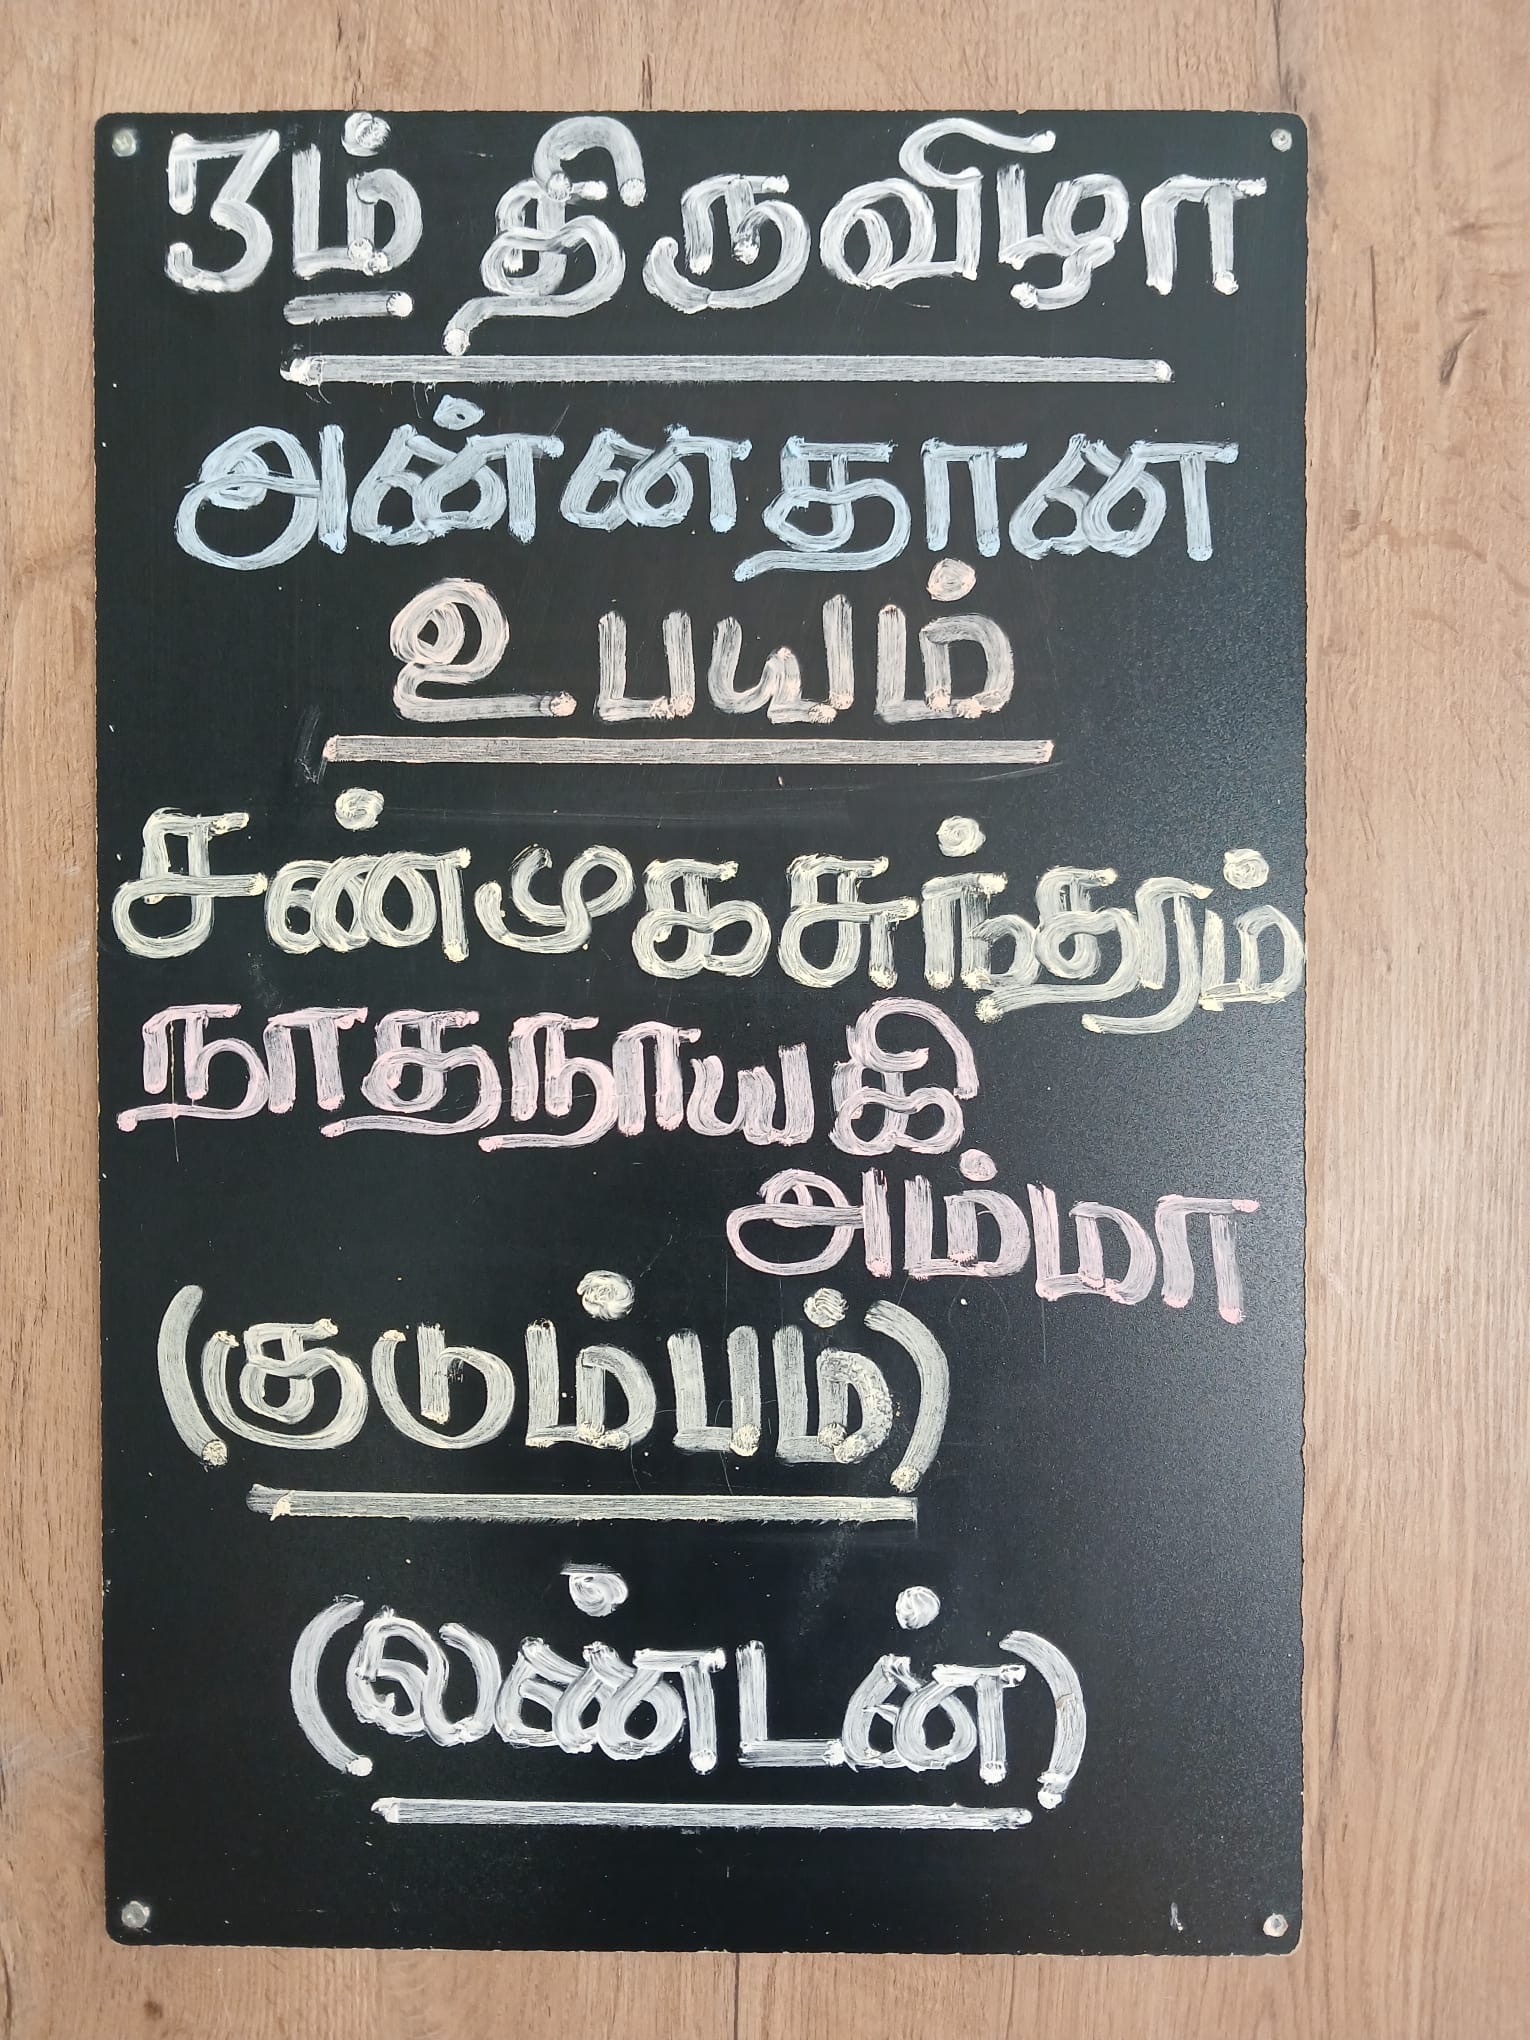 3ம் திருவிழா
அன்னதான
உபயம்
சண்முகசுந்தரம்
நாதநாயகி
அம்மா
(குடும்பம்)
(லண்டன்)